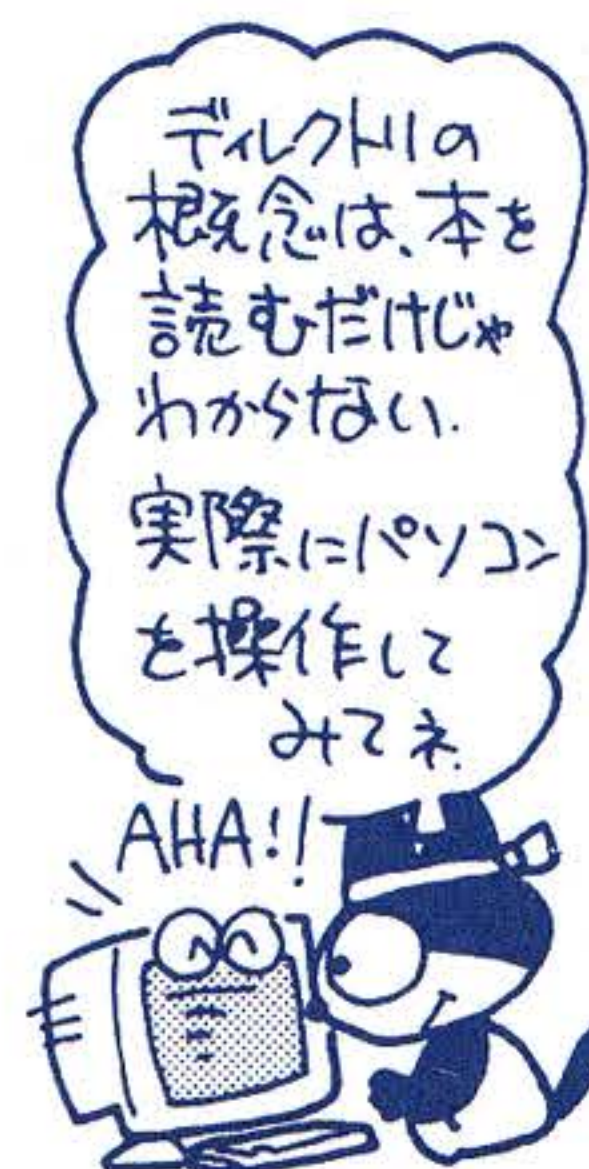 ディレクトリの
概念は、本を
読むだけじゃ
わからない.
実際にパソコン
を操作して
みてネ.
AHA!!